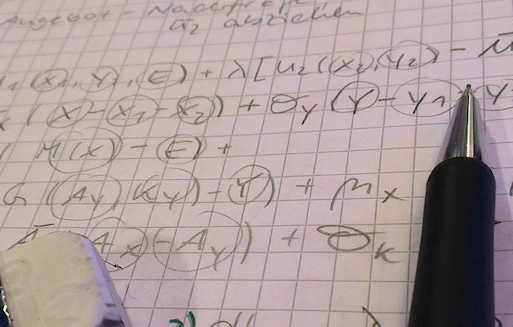 Angebot - Nachfrage
ū₂ abziehen
(x₁, Y₁, E) + λ[u₂(x₂, y₂) - ū
(X - X₁ - X₂) + σ_Y (Y - Y₁ - Y
M(X) - E) +
G (A_Y, K_Y) - Y) + μ_X
Ā - A_X - A_Y) + σ_K